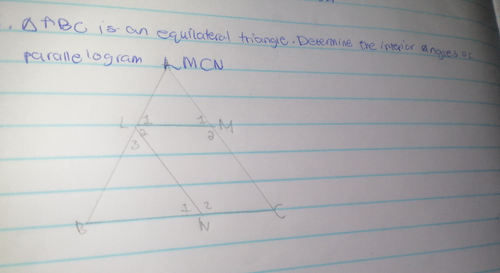 △ABC is an equilateral triangle. Determine the interior angles of
parallelogram LMCN
A
L 1 1 M
2 2
3
1 2 C
B N